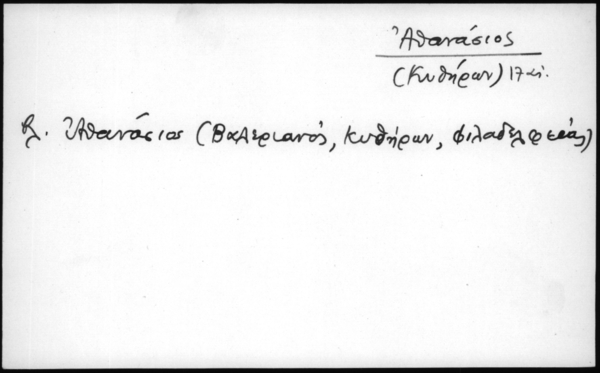 Ἀθανάσιος
(Κυθήρων) 17 αἰ.
βλ. Ἀθανάσιος (Βαλεριανός, Κυθήρων, Φιλαδελφείας)